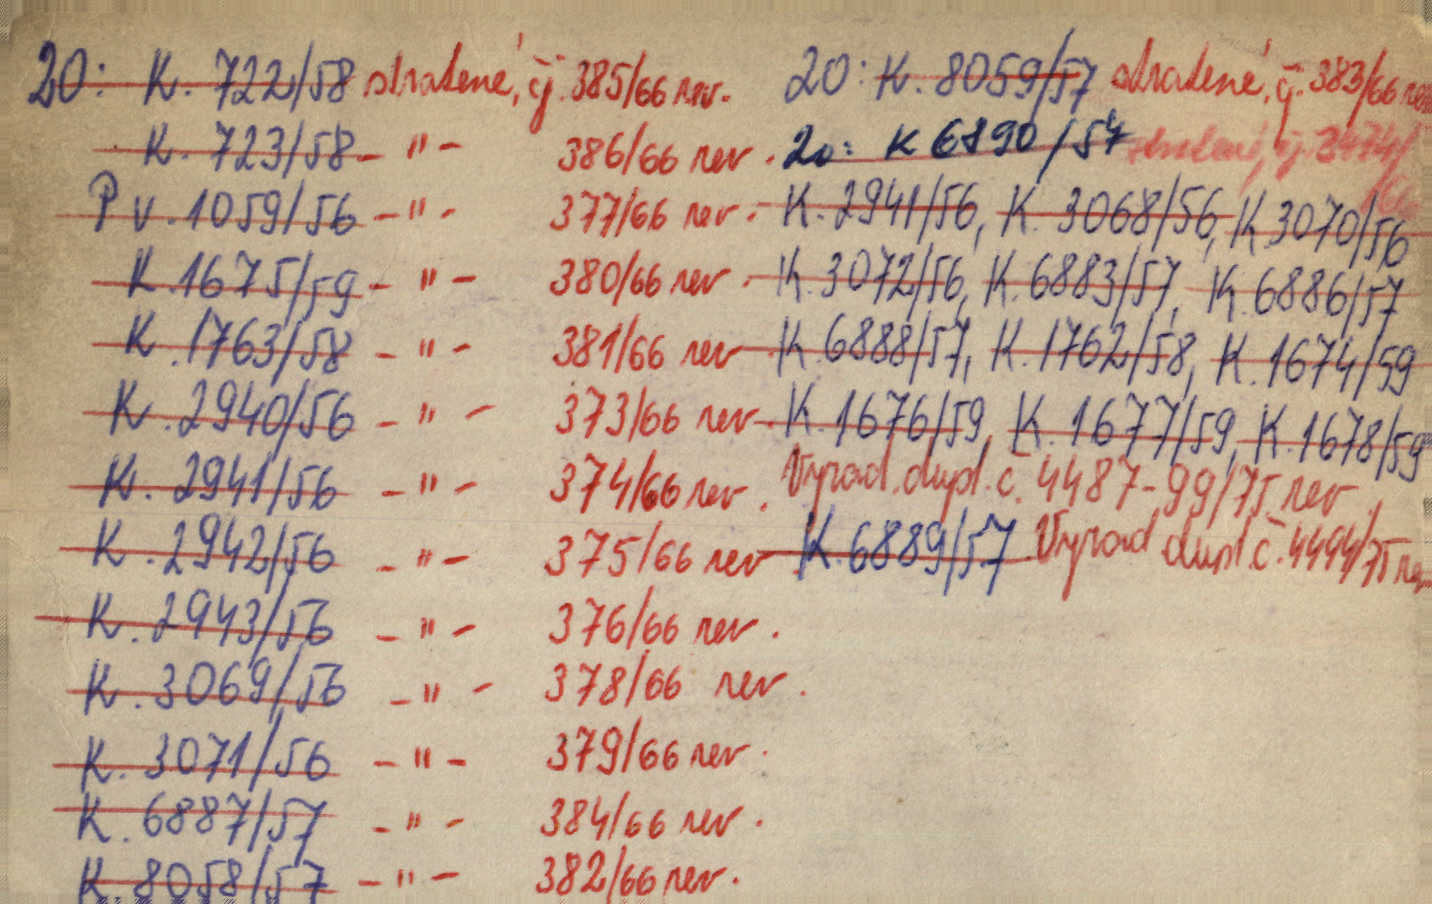 20: K. 722/58 stratené, čj. 385/66 rev.
K. 723/58 - " - 386/66 rev.
Pv. 1059/56 - " - 377/66 rev.
K. 1675/59 - " - 380/66 rev.
K. 1763/58 - " - 381/66 rev
K. 2940/56 - " - 373/66 rev
K. 2941/56 - " - 374/66 rev.
K. 2942/56 - " - 375/66 rev
K. 2943/56 - " - 376/66 rev.
K. 3069/56 - " - 378/66 rev.
K. 3071/56 - " - 379/66 rev.
K. 6887/57 - " - 384/66 rev.
K. 8058/57 - " - 382/66 rev.
20: K. 8059/57 stratené, čj. 383/66 rev
20: K 6890/57 stratené, čj. 3474/
66
K. 2941/56, K. 3068/56, K 3070/56
K. 3072/56, K. 6883/57, K. 6886/57
K. 6888/57, K. 1762/58, K. 1674/59
K. 1676/59, K. 1677/59, K. 1678/59
Vyrad. dupl. č. 4487-99/75 rev.
K. 6889/57 Vyrad dupl. č. 4494/75 rev